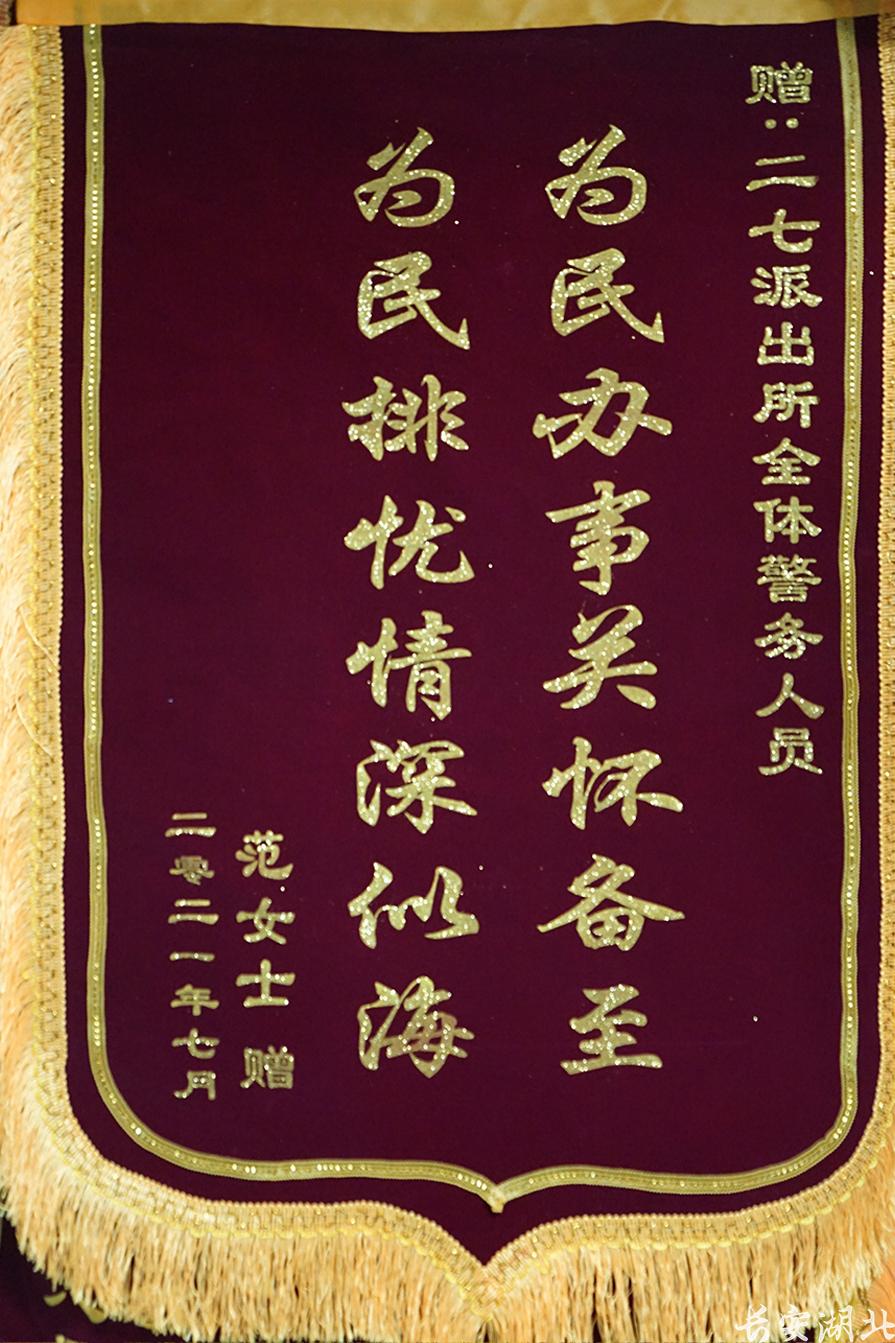 赠：二七派出所全体警务人员
为民办事关怀备至
为民排忧情深似海
范女士 赠
二零二一年七月
长安湖北